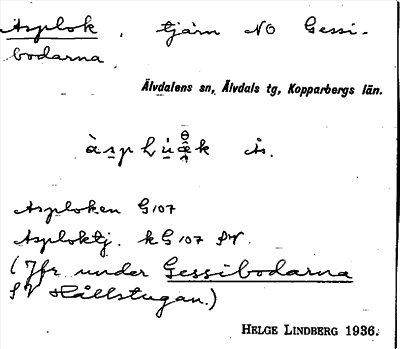 Asplok, tjärn NO Gessi-
bodarna,
Älvdalens sn, Älvdals tg, Kopparbergs län.
Asploken G107
Asploktj. kG107 SV.
(Jfr under Gessibodarna
SV Hållstugan.)
HELGE LINDBERG 1936.